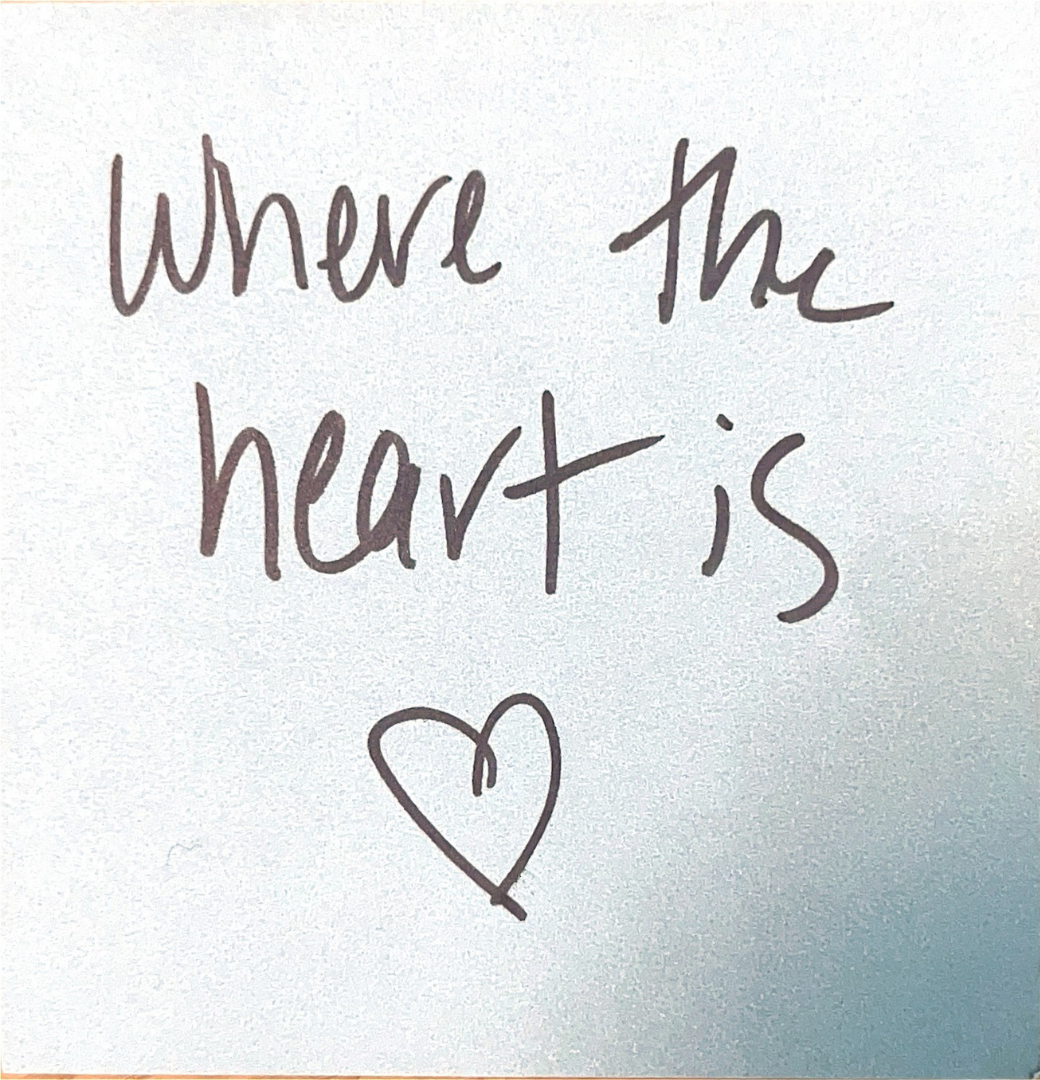 where the
heart is